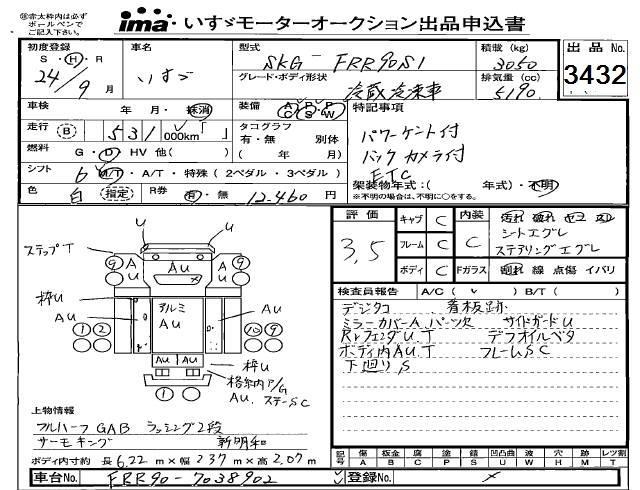 ㊟赤太枠内は必ずボールペンでご記入下さい。
ima いすゞモーターオークション出品申込書
初度登録 S・H・R 24年9月
車名 いすゞ
型式 SKG-FRR90S1
積載(kg) 3050
出品No. 3432
グレード・ボディ形状 冷蔵冷凍車
排気量(cc) 5190
車検 年 月・抹消
装備 AC PS PW
特記事項
走行 B 531,000km「 」
タコグラフ 有・無 別体 ( 年 月)
パワーゲート付
バックカメラ付
ETC
燃料 G・D・HV 他( )
シフト 6 M/T・A/T・特殊(2ペダル・3ペダル)
架装物年式:( 年式)・不明
※不明の場合は、不明に○をする。
色 白 指定
R券 有・無 12,460円
評価 3.5
キャブ C
フレーム C
ボディ C
内装 C
シートエグレ
ステアリングエグレ
Fガラス 割れ 線 点傷 イバリ
検査員報告 A/C( ) B/T( )
デジタコ 看板跡
ミラーカバーA パーツ欠 サイドガードU
RrフェンダU.T デフオイルベタ
ボディ内AU.T フレームSC
下廻りS
ステップT
U U
9 A U AU A U 9
枠U
AU アルミ AU AU
1 2 9
AU AU
枠U
格納P/G
AU.ステーSC
1
上物情報
フルハーフ GAB ラッシング2段
サーモキング 新明和
ボディ内寸約 長6.22m×幅2.37m×高2.07m
記号 傷A 板金B 腐C 塗P 錆S 凹凸曲U 波W 穴H 熱X 跡M レツ割T
車台No. FRR90-7038902
登録No.